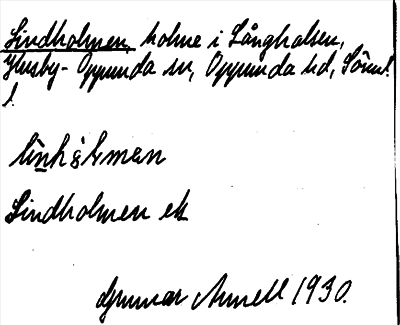 Lindholmen, holme i Långhalsen,
Husby-Oppunda sn, Oppunda hd, Söml.
l.
Lindholmen ek
Gunnar Arnell 1930.